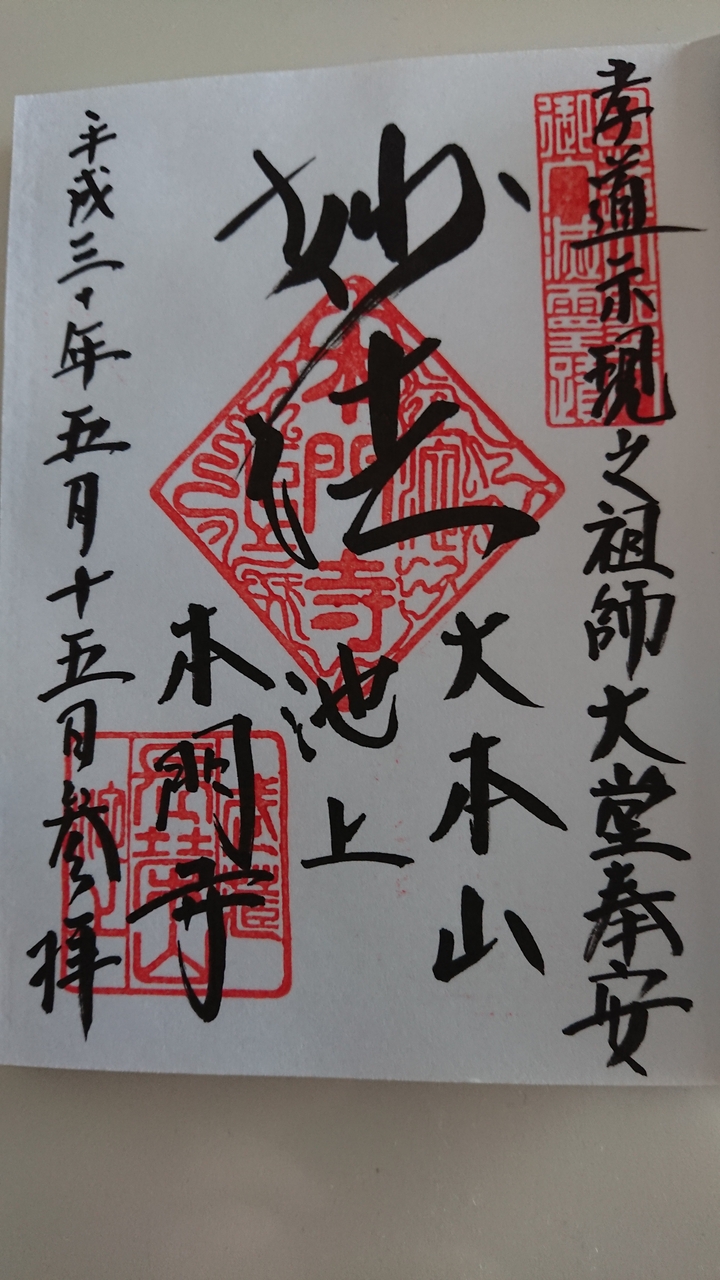 孝道示現之祖師大堂奉安
妙法
大本山
池上
本門寺
平成三十年五月十五日参拝
本門寺